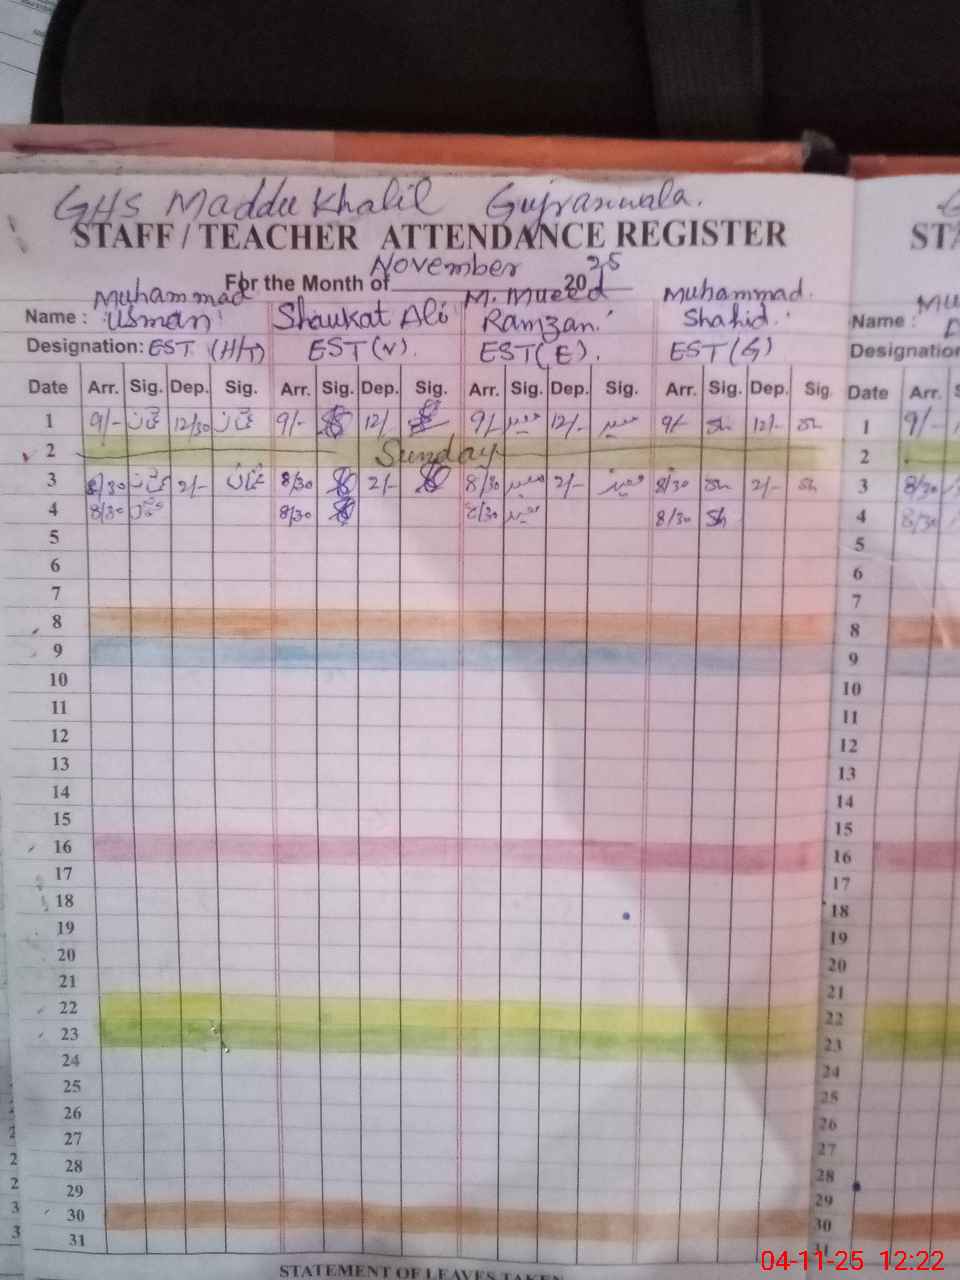 GHS Maddu Khalil Gujranwala.
STAFF / TEACHER ATTENDANCE REGISTER
For the Month of November 2025
Name : Muhammad Usman Shaukat Ali M. Mueed Ramzan. Muhammad Shahid. Name :
Designation: EST (H/T) EST(V). EST(E). EST(G) Designation
Date Arr. Sig. Dep. Sig. Arr. Sig. Dep. Sig. Arr. Sig. Dep. Sig. Arr. Sig. Dep. Sig. Date Arr.
1 9/- 12/30 9/- 12/- 9/- 12/- 9/- Sh 12/- Sh 1 9/-
2 Sunday 2
3 8/30 2/- 8/30 2/- 8/30 2/- 8/30 Sh 2/- Sh 3 8/30
4 8/30 8/30 8/30 8/30 Sh 4 8/30
5 5
6 6
7 7
8 8
9 9
10 10
11 11
12 12
13 13
14 14
15 15
16 16
17 17
18 18
19 19
20 20
21 21
22 22
23 23
24 24
25 25
26 26
27 27
28 28
29 29
30 30
31 31
STATEMENT OF LEAVES TAKEN
04-11-25 12:22